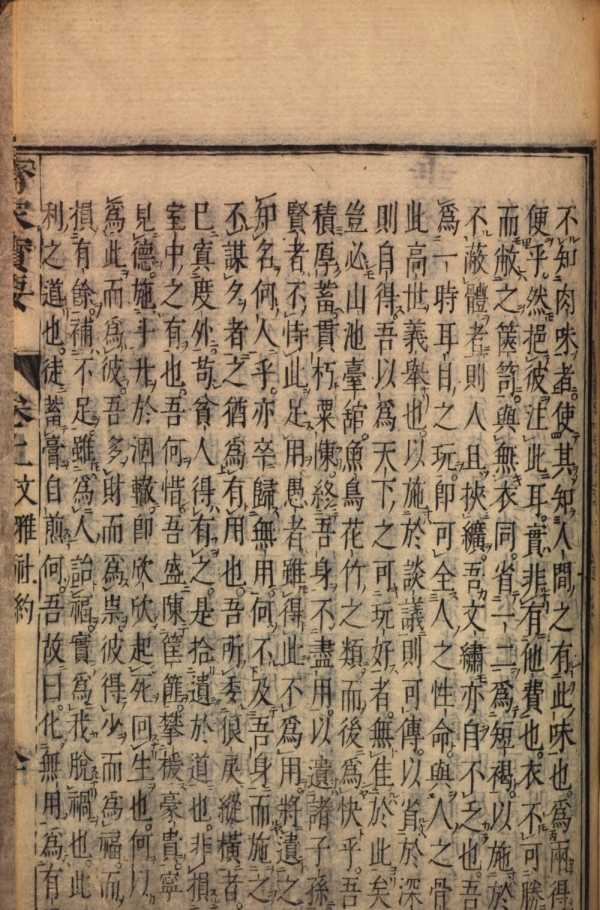 不知肉味者使其知人間之有此味也爲兩得
便乎然挹彼注此耳實非有他費也衣不可勝
而敝之篋笥與無衣同省一二爲短褐以施於
不蔽體者則人且挾纊吾文繡亦自不乏也吾
爲一時耳目之玩卽可全人之性命與人之骨
此高世義舉也以施於談議則可傳以省於深
則自得吾以爲天下之可玩好者無佳於此矣
豈必山池臺舘魚鳥花竹之類而後爲快乎吾
積厚蓄貫朽粟陳終吾身不盡用以遺諸子孫
賢者不恃此足用愚者雖得此不爲用將遺之
知名何人乎亦卒歸無用何不及吾身而施之
不謀夕者之猶爲有用也吾所委狼戾縱橫者
巳寘度外苟貧人得有之是拾遺於道也非損
室中之有也吾何惜吾盛陳筐篚攀援豪貴寧
見德施于升於涸轍卽欣欣起死回生也何以
爲此而爲彼吾多財而爲祟彼得少而爲福而
損有餘補不足雖爲人詒福實爲我脫禍也此
利之道也徒蓄膏自煎何吾故曰化無用爲有
齊家寶要 卷上 文雅社約 全